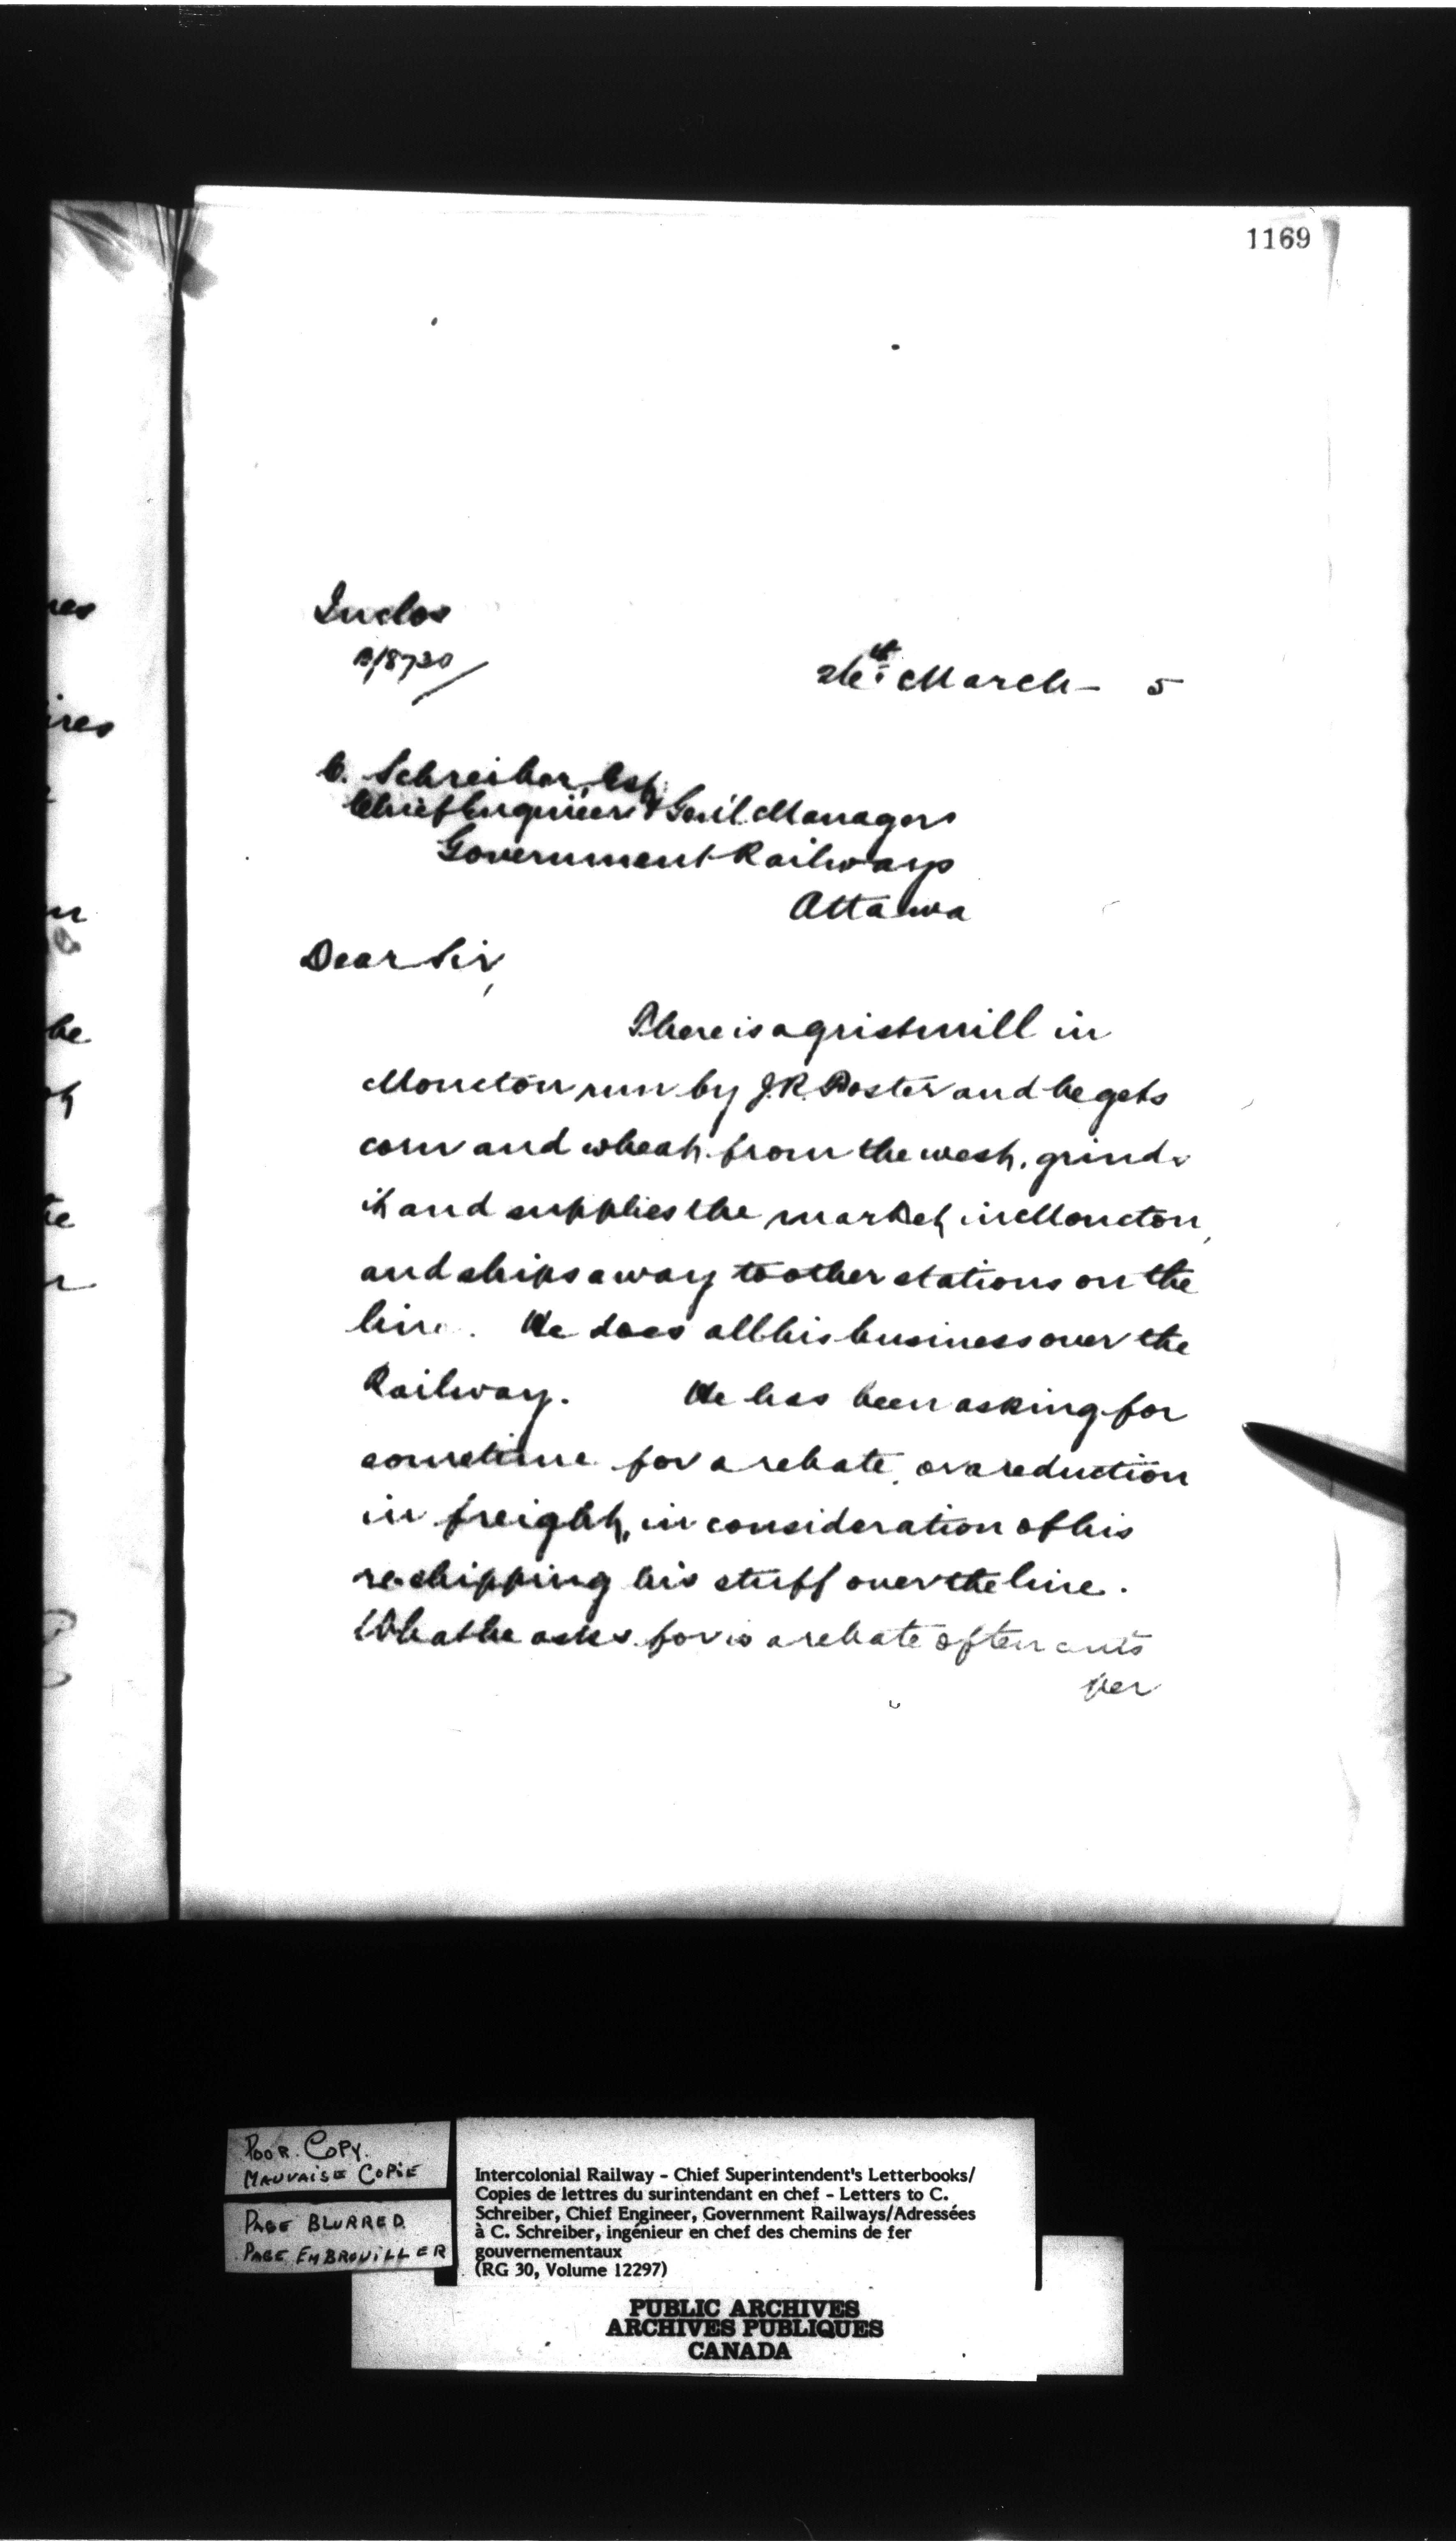 1169
Inclos
26th March 5
C. Schreiber, Esq
Chief Engineer & Gen'l Manager
Government Railways
Ottawa
Dear Sir,
There is a grist mill in
Moncton run by J.R. and he gets
corn and wheat from the west, grinds
it and supplies the market in Moncton,
and ships away to other stations on the
line. He does all his business over the
Railway. He has been asking for
sometime for a rebate, or a reduction
in freight, in consideration of his
reshipping his stuff over the line.
What he asks for is a rebate of ten cents
per
POOR COPY.
MAUVAISE COPIE
PAGE BLURRED
PAGE EMBROUILLER
Intercolonial Railway - Chief Superintendent's Letterbooks/
Copies de lettres du surintendant en chef - Letters to C.
Schreiber, Chief Engineer, Government Railways/Adressées
à C. Schreiber, ingénieur en chef des chemins de fer
gouvernementaux
(RG 30, Volume 12297)
PUBLIC ARCHIVES
ARCHIVES PUBLIQUES
CANADA